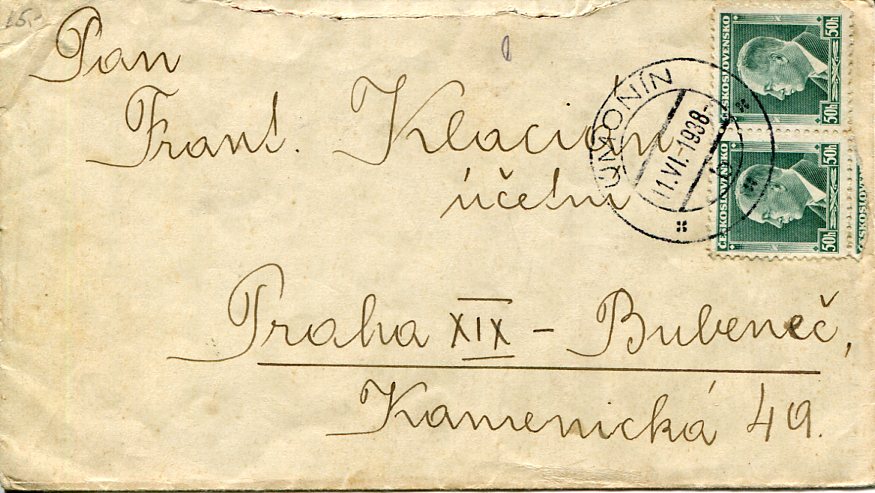 15,-
Pan
Frant. Klacion
účetní
Praha XIX - Bubeneč,
Kamenická 49.
ÚMONÍN
11.VI.1938
ČESKOSLOVENSKO
50h 50h
ČESKOSLOVENSKO
50h 50h